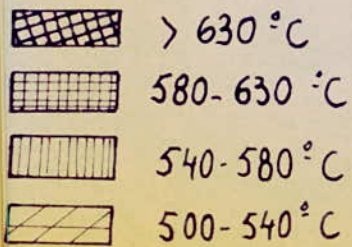 > 630 °C
580-630 °C
540-580 °C
500-540 °C